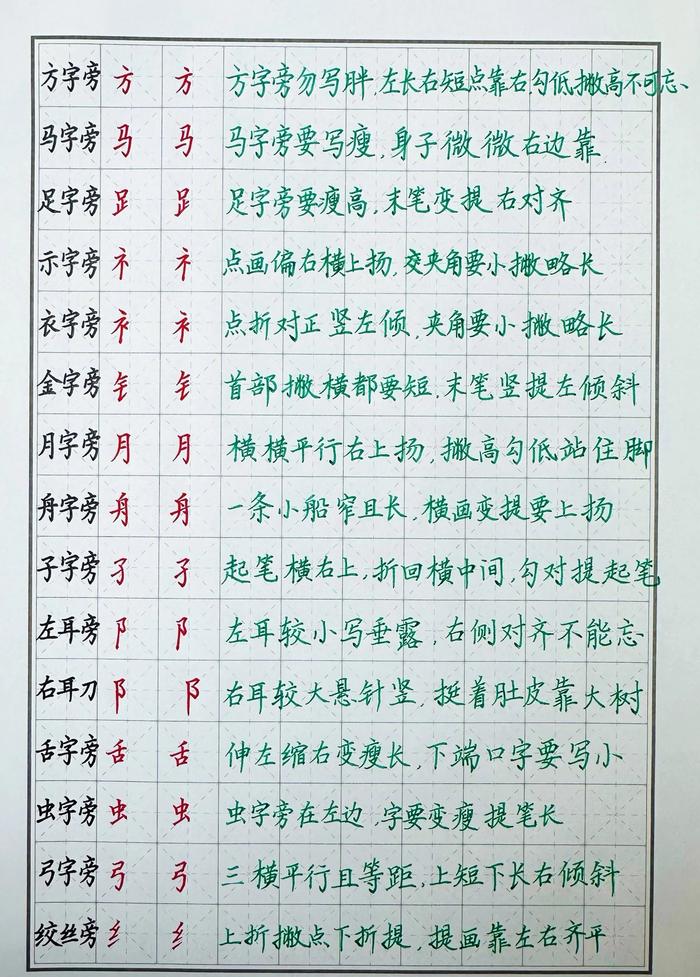 方字旁 方 方 方字旁勿写胖,左长右短点靠右,勾低撇高不可忘、
马字旁 马 马 马字旁要写瘦,身子微微右边靠.
足字旁 𧾷 𧾷 足字旁要瘦高,末笔变提右对齐
示字旁 礻 礻 点画偏右横上扬,交夹角要小撇略长
衣字旁 衤 衤 点折对正竖左倾,夹角要小撇略长
金字旁 钅 钅 首部撇横都要短,末笔竖提左倾斜
月字旁 月 月 横横平行右上扬,撇高勾低站住脚
舟字旁 舟 舟 一条小船窄且长,横画变提要上扬
子字旁 孑 孑 起笔横右上,折回横中间,勾对提起笔
左耳旁 阝 阝 左耳较小写垂露,右侧对齐不能忘
右耳刀 阝 阝 右耳较大悬针竖,挺着肚皮靠大树
舌字旁 舌 舌 伸左缩右变瘦长,下端口字要写小
虫字旁 虫 虫 虫字旁在左边,字要变瘦提笔长
弓字旁 弓 弓 三横平行且等距,上短下长右倾斜
绞丝旁 纟 纟 上折撇点下折提,提画靠左右齐平